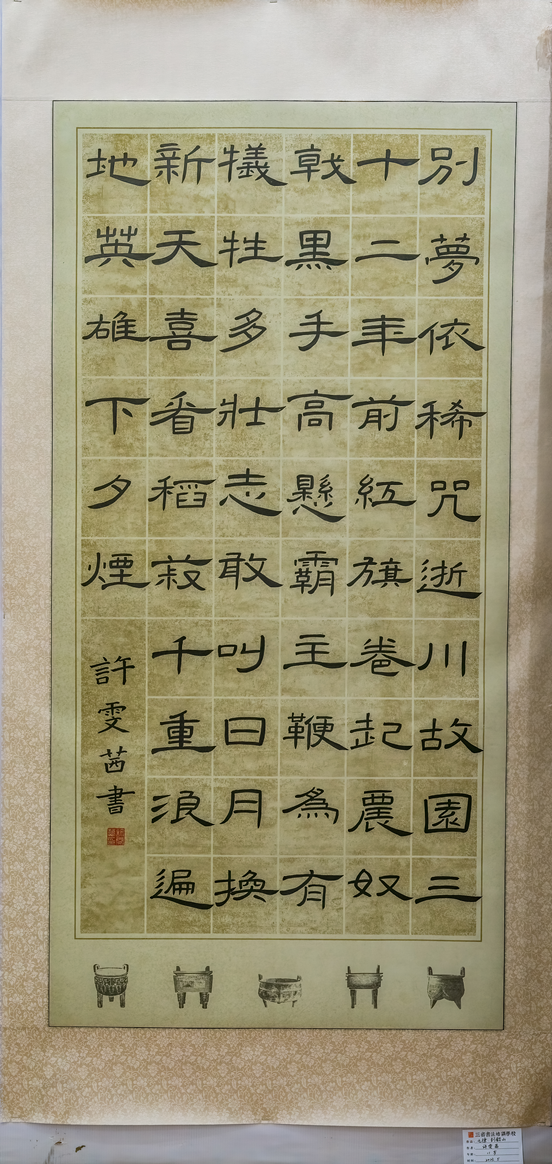 別夢依稀咒逝川故園三
十二年前紅旗卷起農奴
戟黑手高懸霸主鞭為有
犧牲多壯志敢叫日月換
新天喜看稻菽千重浪遍
地英雄下夕煙
許雯茜書